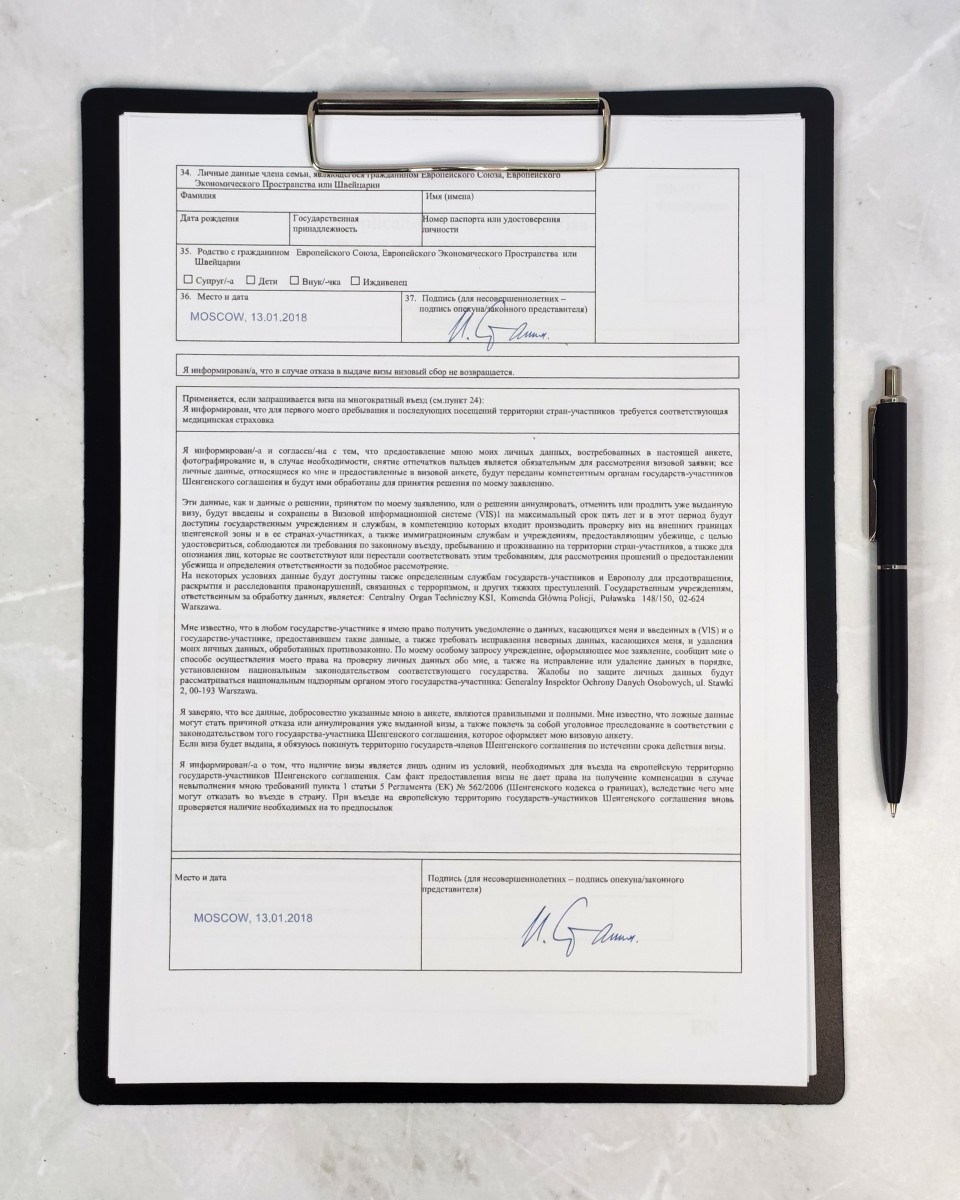 34. Личные данные члена семьи, являющегося гражданином Европейского Союза, Европейского
Экономического Пространства или Швейцарии
Фамилия
Имя (имена)
Дата рождения
Государственная
принадлежность
Номер паспорта или удостоверения
личности
35. Родство с гражданином Европейского Союза, Европейского Экономического Пространства или
Швейцарии
☐ Супруг/-а ☐ Дети ☐ Внук/-чка ☐ Иждивенец
36. Место и дата
MOSCOW, 13.01.2018
37. Подпись (для несовершеннолетних –
подпись опекуна/законного представителя)
Я информирован/а, что в случае отказа в выдаче визы визовый сбор не возвращается.
Применяется, если запрашивается виза на многократный въезд (см.пункт 24):
Я информирован, что для первого моего пребывания и последующих посещений территории стран-участников требуется соответствующая
медицинская страховка
Я информирован/-а и согласен/-на с тем, что предоставление мною моих личных данных, востребованных в настоящей анкете,
фотографирование и, в случае необходимости, снятие отпечатков пальцев является обязательным для рассмотрения визовой заявки; все
личные данные, относящиеся ко мне и предоставленные в визовой анкете, будут переданы компетентным органам государств-участников
Шенгенского соглашения и будут ими обработаны для принятия решения по моему заявлению.
Эти данные, как и данные о решении, принятом по моему заявлению, или о решении аннулировать, отменить или продлить уже выданную
визу, будут введены и сохранены в Визовой информационной системе (VIS)1 на максимальный срок пять лет и в этот период будут
доступны государственным учреждениям и службам, в компетенцию которых входит производить проверку виз на внешних границах
шенгенской зоны и в ее странах-участниках, а также иммиграционным службам и учреждениям, предоставляющим убежище, с целью
удостовериться, соблюдаются ли требования по законному въезду, пребыванию и проживанию на территории стран-участников, а также для
опознания лиц, которые не соответствуют или перестали соответствовать этим требованиям, для рассмотрения прошений о предоставлении
убежища и определения ответственности за подобное рассмотрение.
На некоторых условиях данные будут доступны также определенным службам государств-участников и Европолу для предотвращения,
раскрытия и расследования правонарушений, связанных с терроризмом, и других тяжких преступлений. Государственным учреждением,
ответственным за обработку данных, является: Centralny Organ Techniczny KSI, Komenda Główna Policji, Puławska 148/150, 02-624
Warszawa.
Мне известно, что в любом государстве-участнике я имею право получить уведомление о данных, касающихся меня и введенных в (VIS) и о
государстве-участнике, предоставившем такие данные, а также требовать исправления неверных данных, касающихся меня, и удаления
моих личных данных, обработанных противозаконно. По моему особому запросу учреждение, оформляющее мое заявление, сообщит мне о
способе осуществления моего права на проверку личных данных обо мне, а также на исправление или удаление данных в порядке,
установленном национальным законодательством соответствующего государства. Жалобы по защите личных данных будут
рассматриваться национальным надзорным органом этого государства-участника: Generalny Inspektor Ochrony Danych Osobowych, ul. Stawki
2, 00-193 Warszawa.
Я заверяю, что все данные, добросовестно указанные мною в анкете, являются правильными и полными. Мне известно, что ложные данные
могут стать причиной отказа или аннулирования уже выданной визы, а также повлечь за собой уголовное преследование в соответствии с
законодательством того государства-участника Шенгенского соглашения, которое оформляет мою визовую анкету.
Если виза будет выдана, я обязуюсь покинуть территорию государств-членов Шенгенского соглашения по истечении срока действия визы.
Я информирован/-а о том, что наличие визы является лишь одним из условий, необходимых для въезда на европейскую территорию
государств-участников Шенгенского соглашения. Сам факт предоставления визы не дает права на получение компенсации в случае
невыполнения мною требований пункта 1 статьи 5 Регламента (ЕК) № 562/2006 (Шенгенского кодекса о границах), вследствие чего мне
могут отказать во въезде в страну. При въезде на европейскую территорию государств-участников Шенгенского соглашения вновь
проверяется наличие необходимых на то предпосылок
Место и дата
MOSCOW, 13.01.2018
Подпись (для несовершеннолетних – подпись опекуна/законного
представителя)